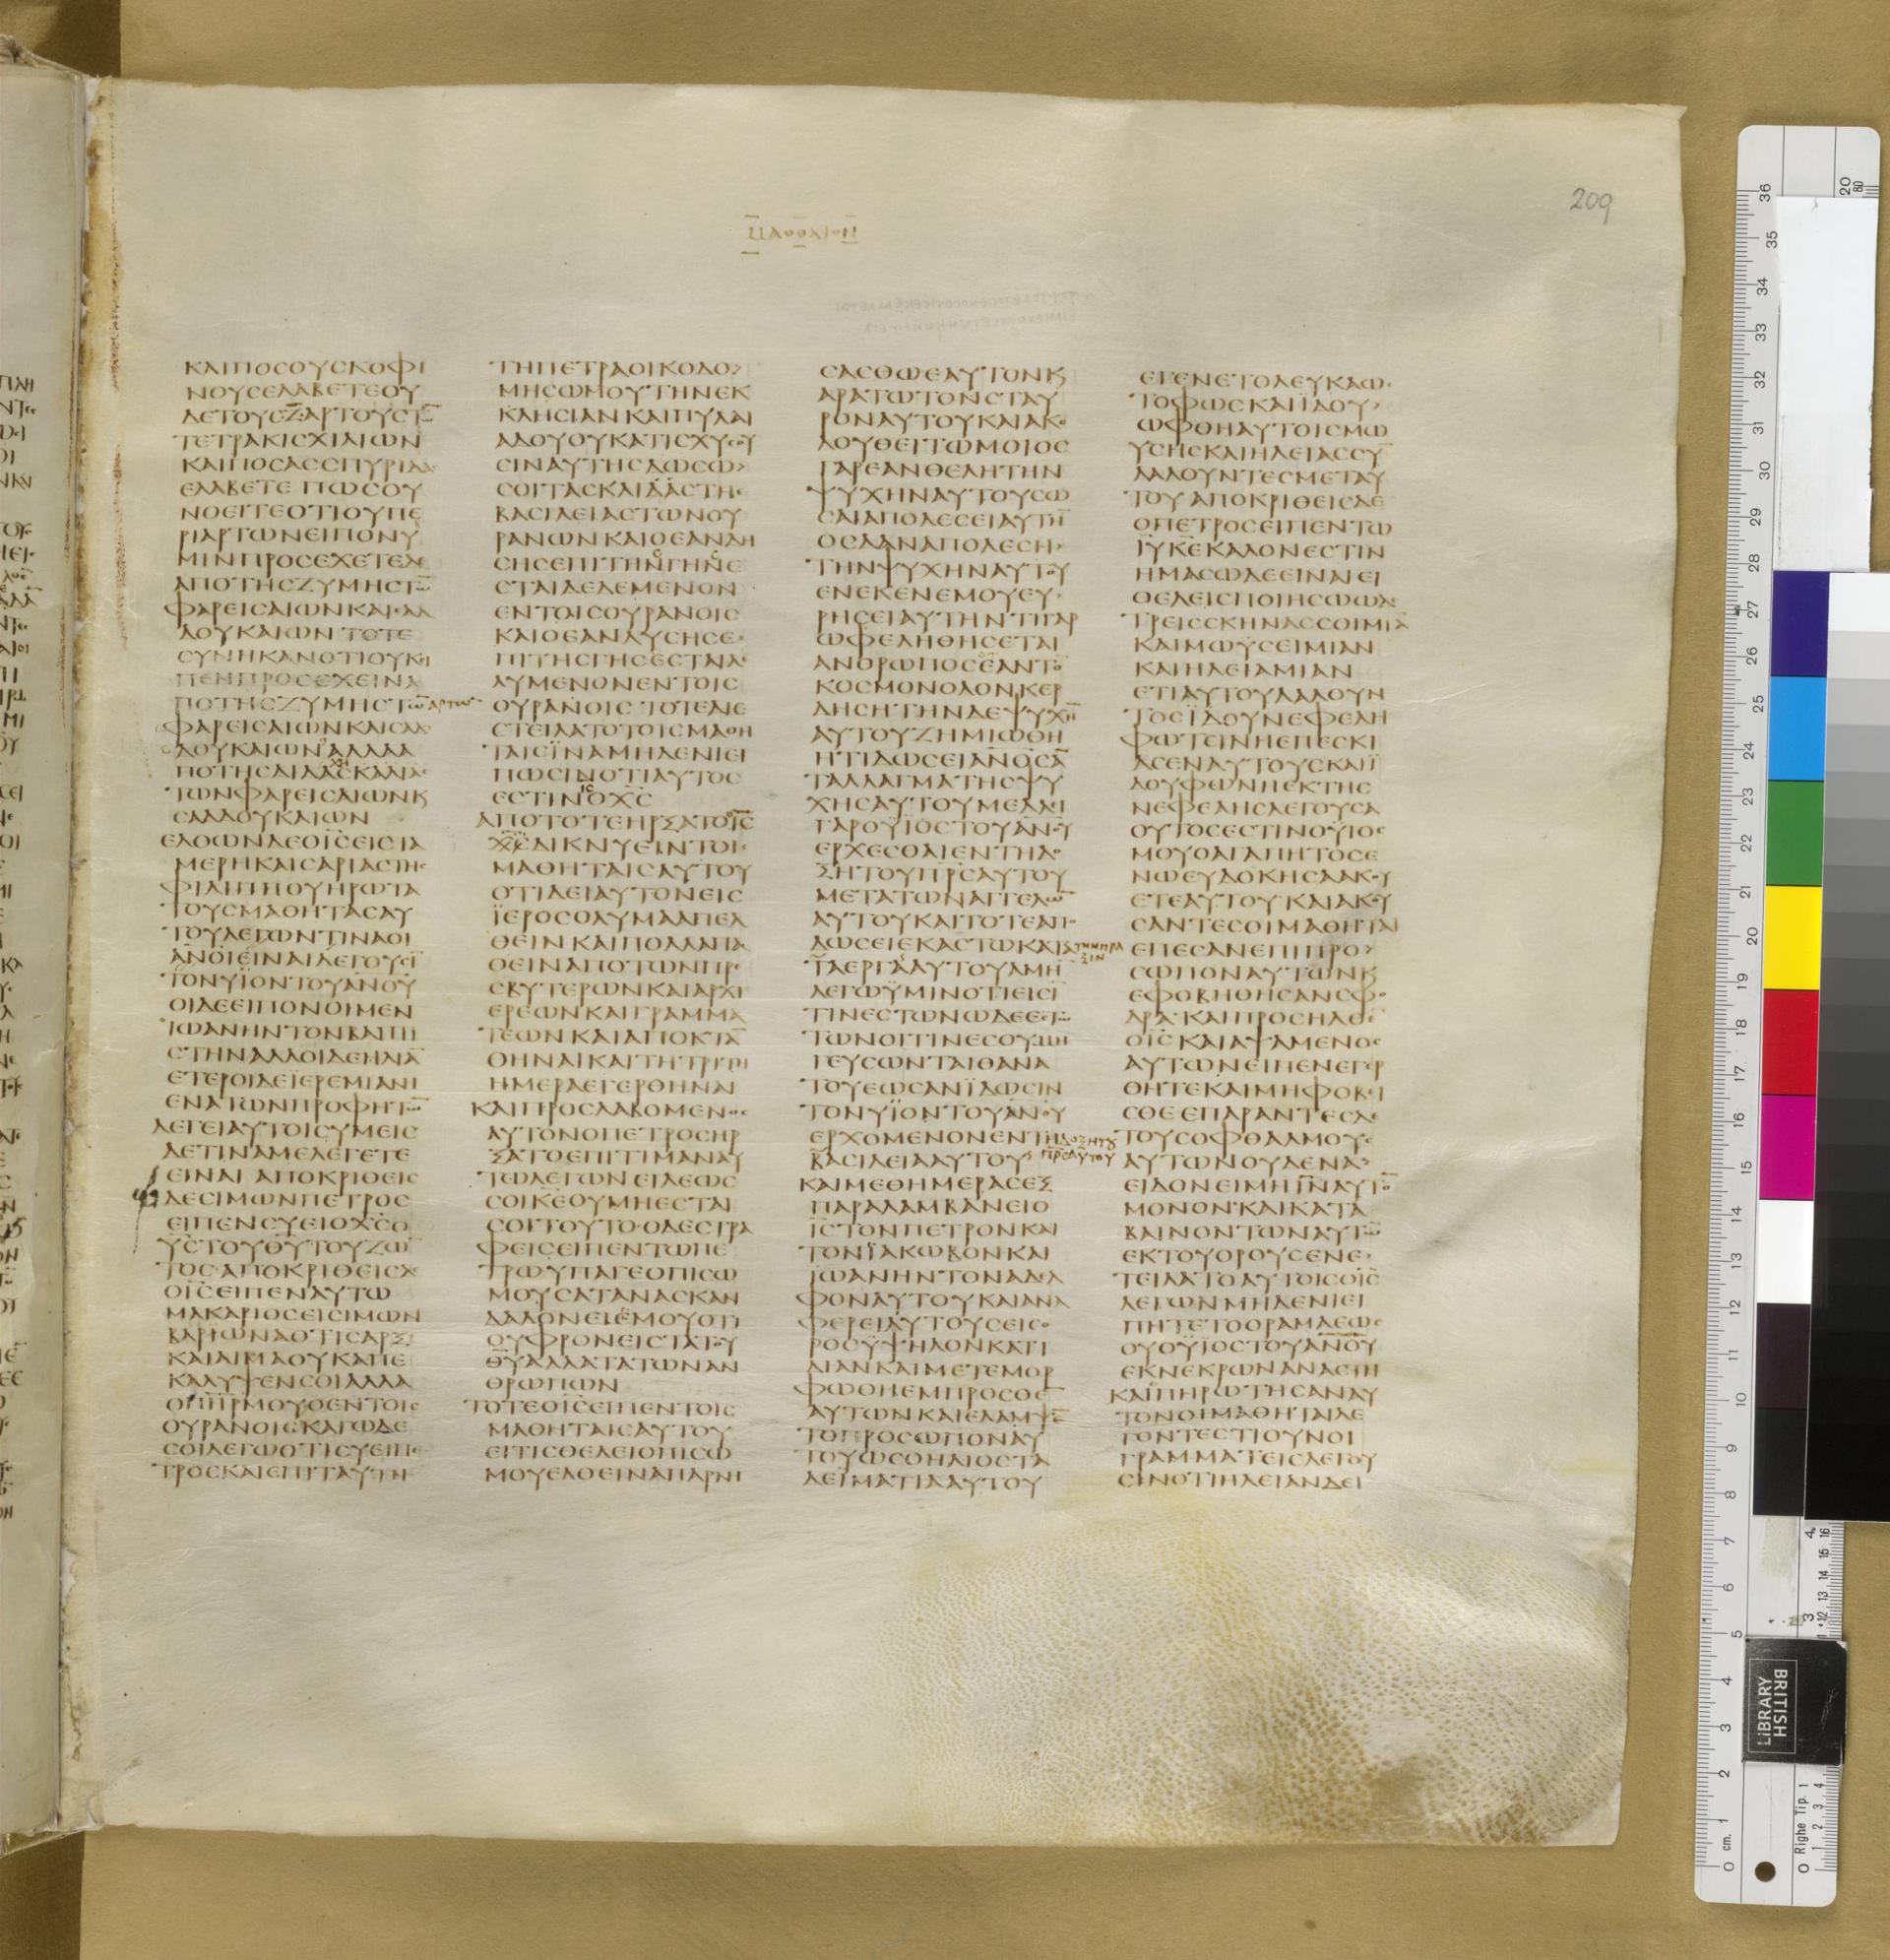 209
ΚΑΙΠΟϹΟΥϹΚΟΦΙ
ΝΟΥϹΕΛΑΒΕΤΕΟΥ
ΔΕΤΟΥϹΖ̅ΑΡΤΟΥϹΤΩ̅
ΤΕΤΡΑΚΙϹΧΙΛΙΩΝ
ΚΑΙΠΟϹΑϹϹΠΥΡΙΔΑϹ
ΕΛΑΒΕΤΕΠΩϹΟΥ
ΝΟΕΙΤΕΟΤΙΟΥΠΕ
ΡΙΑΡΤΩΝΕΙΠΟΝΥ
ΜΙΝΠΡΟϹΕΧΕΤΕΔΕ
ΑΠΟΤΗϹΖΥΜΗϹΤΩ̅
ΦΑΡΕΙϹΑΙΩΝΚΑΙϹΑΔ
ΔΟΥΚΑΙΩΝΤΟΤΕ
ϹΥΝΗΚΑΝΟΤΙΟΥΚΕΙ
ΠΕΝΠΡΟϹΕΧΕΙΝΑ
ΠΟΤΗϹΖΥΜΗϹΤΩ̅ΑΡΤΩ̅
ΦΑΡΕΙϹΑΙΩΝΚΑΙϹΑΔ
ΔΟΥΚΑΙΩΝΑΛΛΑΑ
ΠΟΤΗϹΔΙΔΑϹΚΑΛΙΑϹ
ΤΩΝΦΑΡΕΙϹΑΙΩΝΚ
ϹΑΔΔΟΥΚΑΙΩΝ
ΕΛΘΩΝΔΕΟΙ̅Ϲ̅ΕΙϹΤΑ
ΜΕΡΗΚΑΙϹΑΡΙΑϹΤΗϹ
ΦΙΛΙΠΠΟΥΗΡΩΤΑ
ΤΟΥϹΜΑΘΗΤΑϹΑΥ
ΤΟΥΛΕΓΩΝΤΙΝΑΟΙ
Α̅Ν̅Ο̅Ι̅ΕΙΝΑΙΛΕΓΟΥϹΙ̅
ΤΟΝΥΪΟΝΤΟΥΑ̅Ν̅Ο̅Υ̅
ΟΙΔΕΕΙΠΟΝΟΙΜΕΝ
ΙΩΑΝΗΝΤΟΝΒΑΠΤΙ
ϹΤΗΝΑΛΛΟΙΔΕΗΛΙΑ̅
ΕΤΕΡΟΙΔΕΪΕΡΕΜΙΑΝΗ
ΕΝΑΤΩΝΠΡΟΦΗΤΩ̅
ΛΕΓΕΙΑΥΤΟΙϹΥΜΕΙϹ
ΔΕΤΙΝΑΜΕΛΕΓΕΤΕ
ΕΙΝΑΙΑΠΟΚΡΙΘΕΙϹ
ΔΕϹΙΜΩΝΠΕΤΡΟϹ
ΕΙΠΕΝϹΥΕΙΟΧ̅Ϲ̅Ο
Υ̅Ϲ̅ΤΟΥΘ̅Υ̅ΤΟΥΖΩ̅
ΤΟϹΑΠΟΚΡΙΘΕΙϹΔΕ
ΟΙ̅Ϲ̅ΕΙΠΕΝΑΥΤΩ
ΜΑΚΑΡΙΟϹΕΙϹΙΜΩΝ
ΒΑΡΙΩΝΑΟΤΙϹΑΡΞ
ΚΑΙΑΙΜΑΟΥΚΑΠΕ
ΚΑΛΥΨΕΝϹΟΙΑΛΛΑ
ΟΠ̅Η̅Ρ̅ΜΟΥΟΕΝΤΟΙϹ
ΟΥΡΑΝΟΙϹΚΑΓΩΔΕ
ϹΟΙΛΕΓΩΟΤΙϹΥΕΙΠΕ
ΤΡΟϹΚΑΙΕΠΙΤΑΥΤΗ
ΤΗΠΕΤΡΑΟΙΚΟΔΟ>
ΜΗϹΩΜΟΥΤΗΝΕΚ
ΚΛΗϹΙΑΝΚΑΙΠΥΛΑΙ
ΑΔΟΥΟΥΚΑΤΙϹΧΥϹΟΥ
ϹΙΝΑΥΤΗϹΔΩϹΩ>
ϹΟΙΤΑϹΚΛΙΔΑϹΤΗϹ
ΒΑϹΙΛΕΙΑϹΤΩΝΟΥ
ΡΑΝΩΝΚΑΙΟΕΑΝΔΗ
ϹΗϹΕΠΙΤΗΝΓΗΝΕ
ϹΤΑΙΔΕΔΕΜΕΝΟΝ
ΕΝΤΟΙϹΟΥΡΑΝΟΙϹ
ΚΑΙΟΕΑΝΛΥϹΗϹΕ
ΠΙΤΗϹΓΗϹΕϹΤΑΙΛΕ
ΛΥΜΕΝΟΝΕΝΤΟΙϹ
ΟΥΡΑΝΟΙϹΤΟΤΕΔΙΕ
ϹΤΕΙΛΑΤΟΤΟΙϹΜΑΘΗ
ΤΑΙϹΪΝΑΜΗΔΕΝΙΕΙ
ΠΩϹΙΝΟΤΙΑΥΤΟϹ
ΕϹΤΙΝΟΧ̅Ϲ̅
ΑΠΟΤΟΤΕΗΡΞΑΤΟΙ̅Ϲ̅
Χ̅Ϲ̅ΔΙΚΝΥΕΙΝΤΟΙϹ
ΜΑΘΗΤΑΙϹΑΥΤΟΥ
ΟΤΙΔΕΙΑΥΤΟΝΕΙϹ
ΪΕΡΟϹΟΛΥΜΑΑΠΕΛ
ΘΕΙΝΚΑΙΠΟΛΛΑΠΑ
ΘΕΙΝΑΠΟΤΩΝΠΡΕ
ϹΒΥΤΕΡΩΝΚΑΙΑΡΧΙ
ΕΡΕΩΝΚΑΙΓΡΑΜΜΑ
ΤΕΩΝΚΑΙΑΠΟΚΤΑ̅
ΘΗΝΑΙΚΑΙΤΗΤΡΙΤΗ
ΗΜΕΡΑΕΓΕΡΘΗΝΑΙ
ΚΑΙΠΡΟϹΛΑΒΟΜΕΝΟϹ
ΑΥΤΟΝΟΠΕΤΡΟϹΗΡ
ΞΑΤΟΕΠΙΤΙΜΑΝΑΥ
ΤΩΛΕΓΩΝΕΙΛΕΩϹ
ϹΟΙΚ̅Ε̅ΟΥΜΗΕϹΤΑΙ
ϹΟΙΤΟΥΤΟΟΔΕϹΤΡΑ
ΦΕΙϹΕΙΠΕΝΤΩΠΕ
ΤΡΩΥΠΑΓΕΟΠΙϹΩ
ΜΟΥϹΑΤΑΝΑϹΚΑΝ
ΔΑΛΟΝΕΙΕΜΟΥΟΤΙ
ΟΥΦΡΟΝΕΙϹΤΑΤΟΥ
Θ̅Υ̅ΑΛΛΑΤΑΤΩΝΑΝ
ΘΡΩΠΩΝ
ΤΟΤΕΟΙ̅Ϲ̅ΕΙΠΕΝΤΟΙϹ
ΜΑΘΗΤΑΙϹΑΥΤΟΥ
ΕΙΤΙϹΘΕΛΕΙΟΠΙϹΩ
ΜΟΥΕΛΘΕΙΝΑΠΑΡΝΗ
ϹΑϹΘΩΕΑΥΤΟΝΚ
ΑΡΑΤΩΤΟΝϹΤΑΥ
ΡΟΝΑΥΤΟΥΚΑΙΑΚΟ
ΛΟΥΘΕΙΤΩΜΟΙΟϹ
ΓΑΡΕΑΝΘΕΛΗΤΗΝ
ΨΥΧΗΝΑΥΤΟΥϹΩ
ϹΑΙΑΠΟΛΕϹΕΙΑΥΤΗ̅
ΟϹΔΑΝΑΠΟΛΕϹΗ>
ΤΗΝΨΥΧΗΝΑΥΤΟΥ
ΕΝΕΚΕΝΕΜΟΥΕΥ
ΡΗϹΕΙΑΥΤΗΝΤΙΓΑΡ
ΩΦΕΛΗΘΗϹΕΤΑΙ
ΑΝΘΡΩΠΟϹΕΑΝΤΟ̅
ΚΟϹΜΟΝΟΛΟΝΚΕΡ
ΔΗϹΗΤΗΝΔΕΨΥΧΗ̅
ΑΥΤΟΥΖΗΜΙΩΘΗ
ΗΤΙΔΩϹΕΙΑ̅Ν̅Ο̅Ϲ̅Α̅
ΤΑΛΛΑΓΜΑΤΗϹΨΥ
ΧΗϹΑΥΤΟΥΜΕΛΛΙ
ΓΑΡΟΥΪΟϹΤΟΥΑ̅Ν̅Ο̅Υ̅
ΕΡΧΕϹΘΑΙΕΝΤΗΔΟ
ΞΗΤΟΥΠ̅Ρ̅Ϲ̅ΑΥΤΟΥ
ΜΕΤΑΤΩΝΑΓΓΕΛΩ̅
ΑΥΤΟΥΚΑΙΤΟΤΕΑΠΟ
ΔΩϹΕΙΕΚΑϹΤΩΚΑΤΑΤΗΝΠΡΑ
ΞΙΝ
ΤΑΕΡΓΑΑΥΤΟΥΑΜΗ
ΛΕΓΩΫΜΙΝΟΤΙΕΙϹΙ̅
ΤΙΝΕϹΤΩΝΩΔΕΕϹΤΩ
ΤΩΝΟΙΤΙΝΕϹΟΥΜΗ
ΓΕΥϹΩΝΤΑΙΘΑΝΑ
ΤΟΥΕΩϹΑΝΪΔΩϹΙΝ
ΤΟΝΥΪΟΝΤΟΥΑ̅Ν̅Ο̅Υ̅
ΕΡΧΟΜΕΝΟΝΕΝΤΗΔΟΞΗΤΟΥ
Π̅Ρ̅Ϲ̅ΑΥΤΟΥ
ΒΑϹΙΛΕΙΑΑΥΤΟΥ
ΚΑΙΜΕΘΗΜΕΡΑϹΕΞ
ΠΑΡΑΛΑΜΒΑΝΕΙΟ
Ι̅Ϲ̅ΤΟΝΠΕΤΡΟΝΚΑΙ
ΤΟΝΪΑΚΩΒΟΝΚΑΙ
ΙΩΑΝΗΝΤΟΝΑΔΕΛ
ΦΟΝΑΥΤΟΥΚΑΙΑΝΑ
ΦΕΡΕΙΑΥΤΟΥϹΕΙϹΟ
ΡΟϹΫΨΗΛΟΝΚΑΤΙ
ΔΙΑΝΚΑΙΜΕΤΕΜΟΡ
ΦΩΘΗΕΜΠΡΟϹΘΕ̅
ΑΥΤΩΝΚΑΙΕΛΑΜΨΕ̅
ΤΟΠΡΟϹΩΠΟΝΑΥ
ΤΟΥΩϹΟΗΛΙΟϹΤΑ
ΔΕΙΜΑΤΙΑΑΥΤΟΥ
ΕΓΕΝΕΤΟΛΕΥΚΑΩϹ
ΤΟΦΩϹΚΑΙΪΔΟΥ>
ΩΦΘΗΑΥΤΟΙϹΜΩ
ΥϹΗϹΚΑΙΗΛΕΙΑϹϹΥ̅
ΛΑΛΟΥΝΤΕϹΜΕΤΑΥ
ΤΟΥΑΠΟΚΡΙΘΕΙϹΔΕ
ΟΠΕΤΡΟϹΕΙΠΕΝΤΩ
Ι̅Υ̅Κ̅Ε̅ΚΑΛΟΝΕϹΤΙΝ
ΗΜΑϹΩΔΕΕΙΝΑΙΕΙ
ΘΕΛΕΙϹΠΟΙΗϹΩΩΔΕ
ΤΡΕΙϹϹΚΗΝΑϹϹΟΙΜΙΑ̅
ΚΑΙΜΩΥϹΕΙΜΙΑΝ
ΚΑΙΗΛΕΙΑΜΙΑΝ
ΕΤΙΑΥΤΟΥΛΑΛΟΥΝ
ΤΟϹΪΔΟΥΝΕΦΕΛΗ
ΦΩΤΕΙΝΗΕΠΕϹΚΙ
ΑϹΕΝΑΥΤΟΥϹΚΑΙΪ
ΔΟΥΦΩΝΗΕΚΤΗϹ
ΝΕΦΕΛΗϹΛΕΓΟΥϹΑ
ΟΥΤΟϹΕϹΤΙΝΟΥΙΟϹ
ΜΟΥΟΑΓΑΠΗΤΟϹΕ
ΝΩΕΥΔΟΚΗϹΑΑΚΟΥ
ΕΤΕΑΥΤΟΥΚΑΙΑΚΟΥ
ϹΑΝΤΕϹΟΙΜΑΘΗΤΑΙ
ΕΠΕϹΑΝΕΠΙΠΡΟ>
ϹΩΠΟΝΑΥΤΩΝΚ
ΕΦΟΒΗΘΗϹΑΝϹΦΟ
ΔΡΑΚΑΙΠΡΟϹΗΛΘΕ̅
ΟΙ̅Ϲ̅ΚΑΙΑΨΑΜΕΝΟϹ
ΑΥΤΩΝΕΙΠΕΝΕΓΕΡ
ΘΗΤΕΚΑΙΜΗΦΟΒΕΙ
ϹΘΕΕΠΑΡΑΝΤΕϹΔΕ
ΤΟΥϹΟΦΘΑΛΜΟΥϹ
ΑΥΤΩΝΟΥΔΕΝΑ>
ΕΙΔΟΝΕΙΜΗΙ̅Ν̅ΑΥΤΟ̅
ΜΟΝΟΝΚΑΙΚΑΤΑ
ΒΑΙΝΟΝΤΩΝΑΥΤΩ̅
ΕΚΤΟΥΟΡΟΥϹΕΝΕ
ΤΕΙΛΑΤΟΑΥΤΟΙϹΟΙ̅Ϲ̅
ΛΕΓΩΝΜΗΔΕΝΙΕΙ
ΠΗΤΕΤΟΟΡΑΜΑΕΩϹ
ΟΥΟΥΪΟϹΤΟΥΑ̅Ν̅Ο̅Υ̅
ΕΚΝΕΚΡΩΝΑΝΑϹΤΗ
ΚΑΙΕΠΗΡΩΤΗϹΑΝΑΥ
ΤΟΝΟΙΜΑΘΗΤΑΙΛΕ
ΓΟΝΤΕϹΤΙΟΥΝΟΙ
ΓΡΑΜΜΑΤΕΙϹΛΕΓΟΥ
ϹΙΝΟΤΙΗΛΕΙΑΝΔΕΙ
BRITISH
LIBRARY